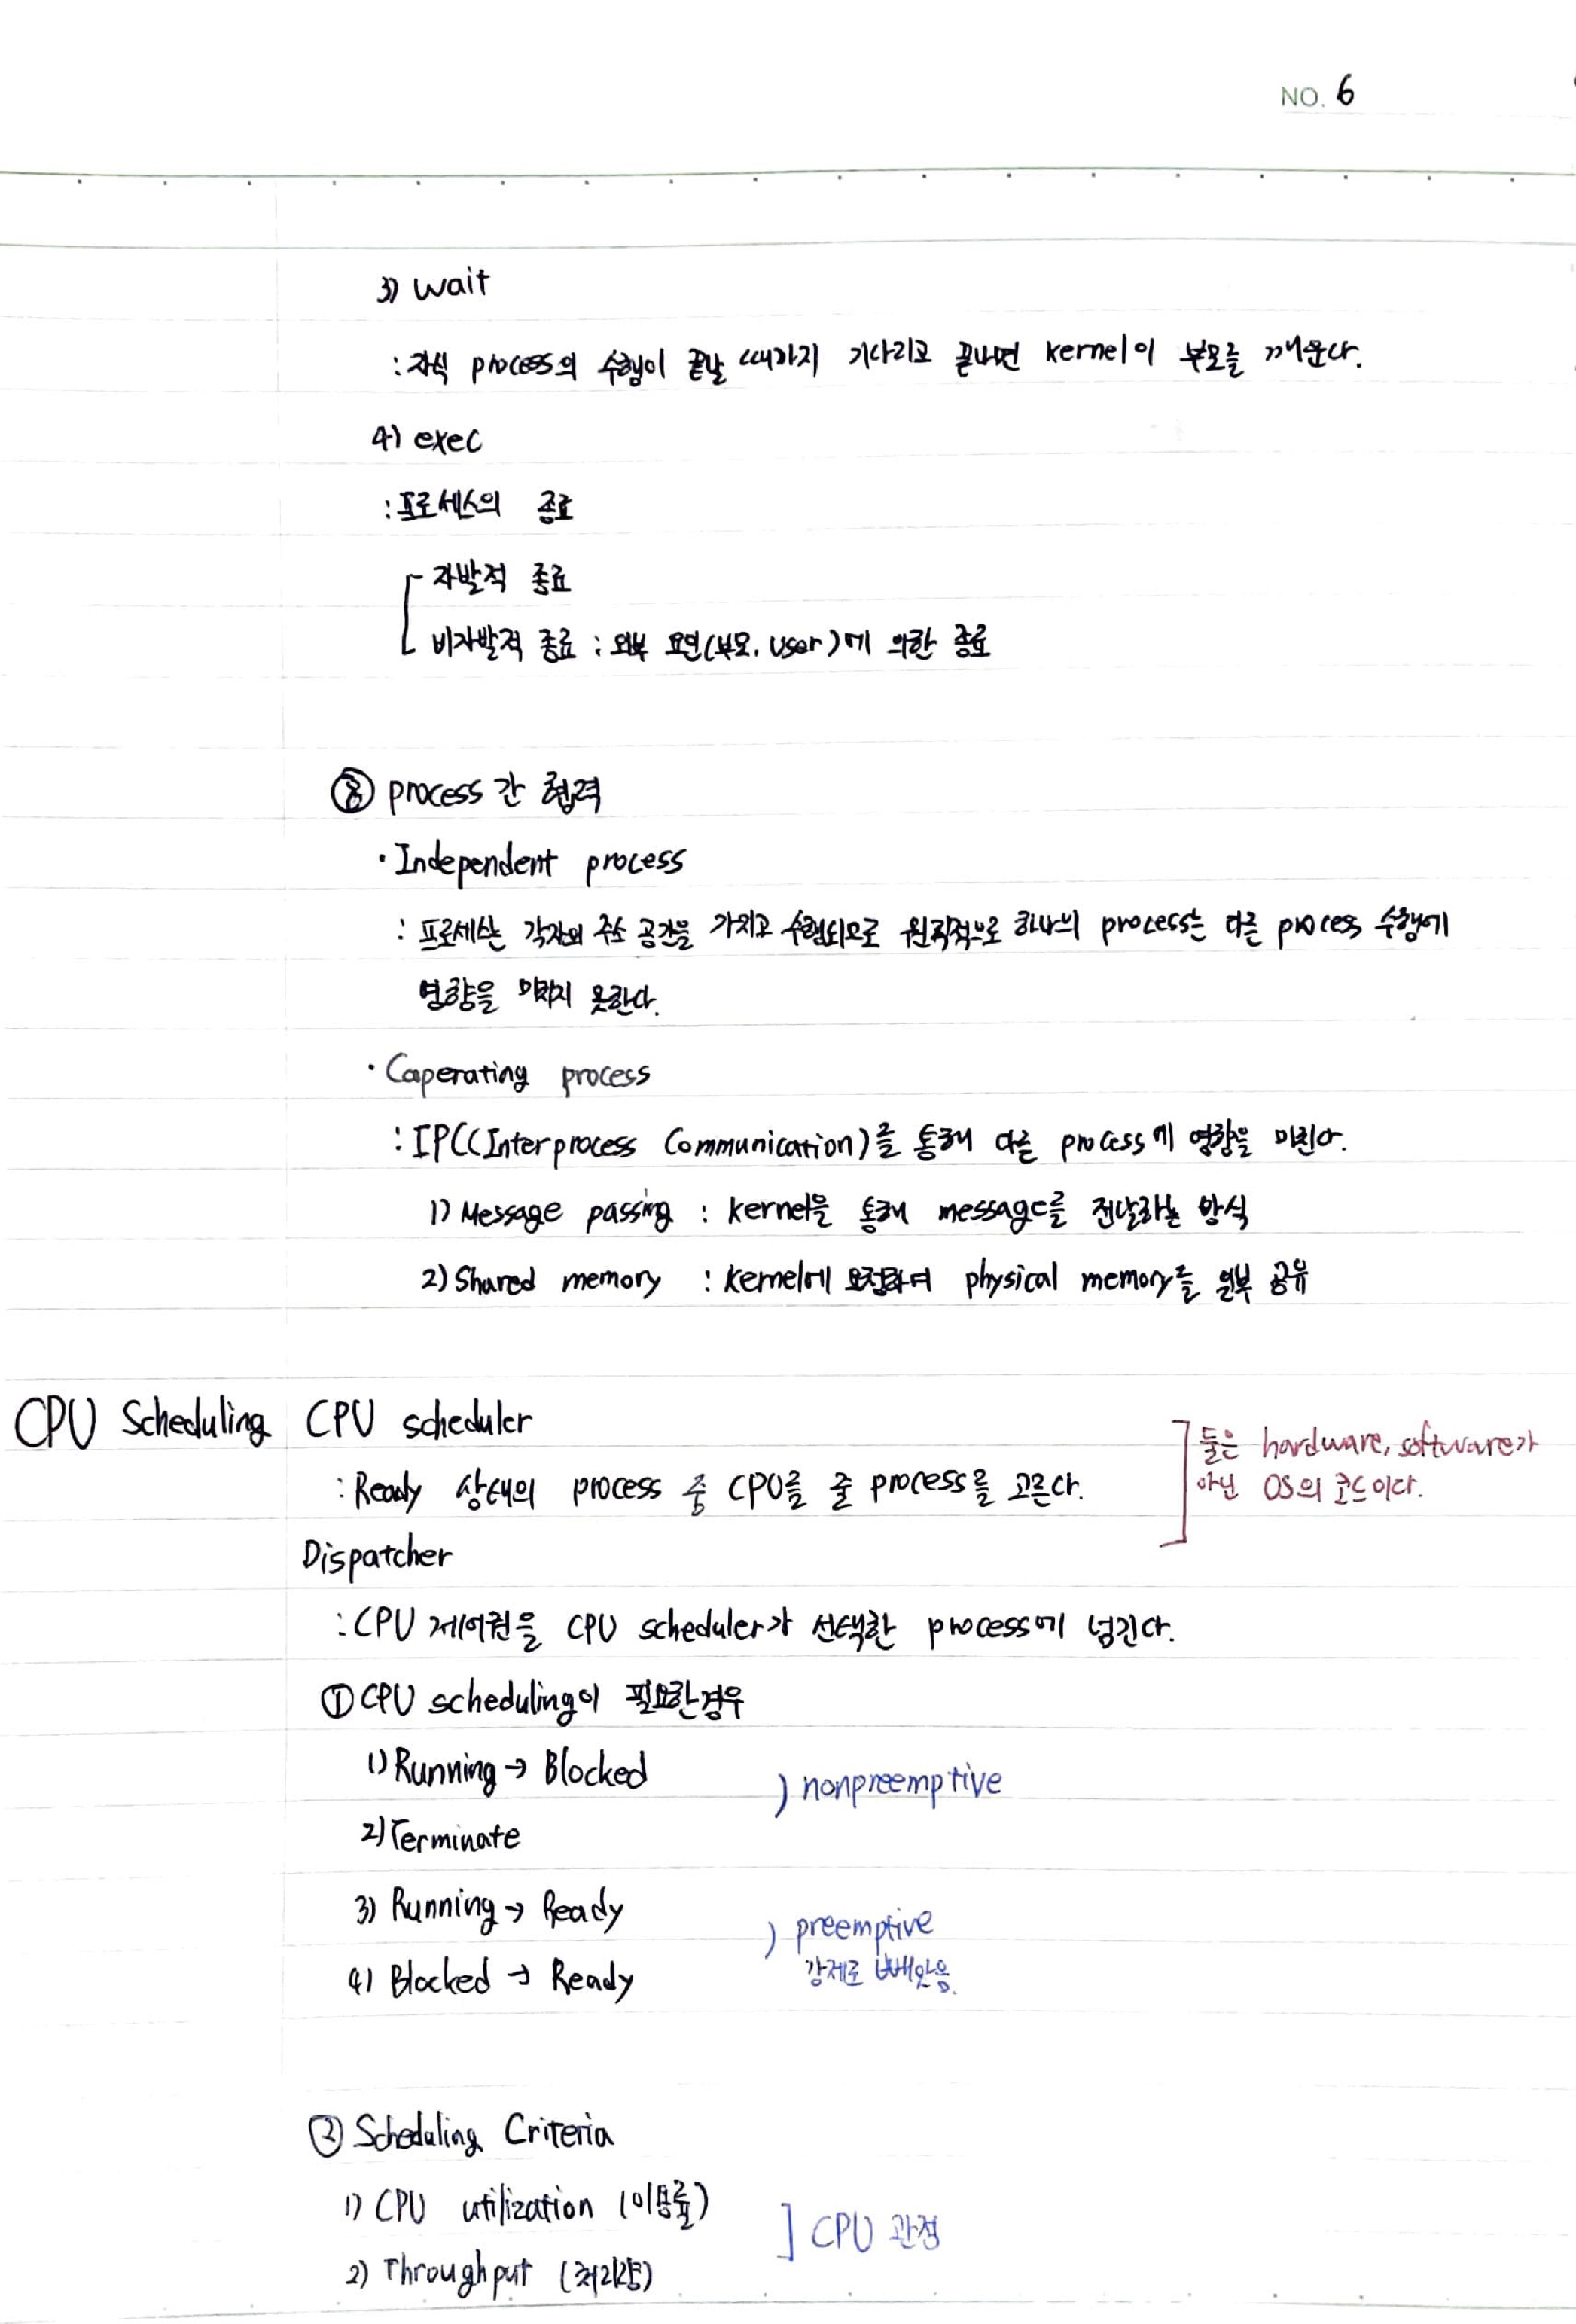 NO. 6
3) wait
: 자식 process의 수행이 끝날 때까지 기다리고 끝나면 kernel이 부모를 깨운다.
4) exec
: 프로세스의 종료
자발적 종료
비자발적 종료 : 외부 요인(부모, user)에 의한 종료
⑧ process 간 협력
· Independent process
: 프로세스는 각자의 주소 공간을 가지고 수행되므로 원칙적으로 하나의 process는 다른 process 수행에
영향을 미치지 못한다.
· Caperating process
: IPC(Interprocess Communication)를 통해 다른 process에 영향을 미친다.
1) Message passing : kernel을 통해 message를 전달하는 방식
2) Shared memory : kernel에 요청하여 physical memory를 일부 공유
CPU Scheduling CPU scheduler
: Ready 상태의 process 중 CPU를 줄 process를 고른다.
둘은 hardware, software가
아닌 OS의 코드이다.
Dispatcher
: CPU 제어권을 CPU scheduler가 선택한 process에 넘긴다.
① CPU scheduling이 필요한 경우
1) Running → Blocked
2) Terminate
) nonpreemptive
3) Running → Ready
4) Blocked → Ready
) preemptive
강제로 빼앗음.
② Scheduling Criteria
1) CPU utilization (이용률)
2) Throughput (처리량)
] CPU 관점